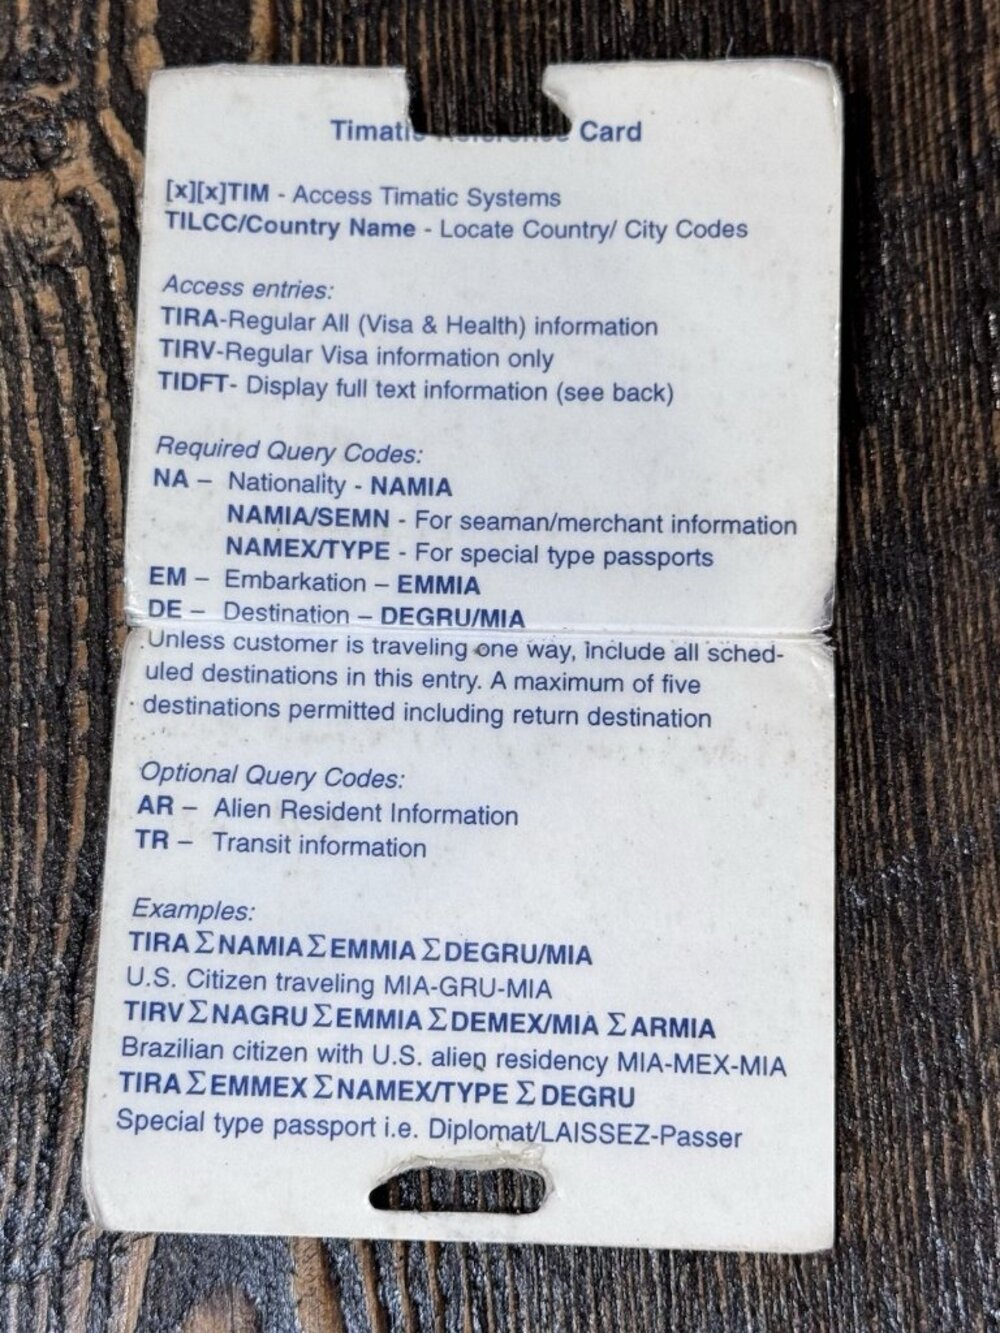 Timatic Reference Card
[x][x]TIM - Access Timatic Systems
TILCC/Country Name - Locate Country/ City Codes
Access entries:
TIRA-Regular All (Visa & Health) information
TIRV-Regular Visa information only
TIDFT- Display full text information (see back)
Required Query Codes:
NA – Nationality - NAMIA
NAMIA/SEMN - For seaman/merchant information
NAMEX/TYPE - For special type passports
EM – Embarkation – EMMIA
DE – Destination – DEGRU/MIA
Unless customer is traveling one way, include all sched-
uled destinations in this entry. A maximum of five
destinations permitted including return destination
Optional Query Codes:
AR – Alien Resident Information
TR – Transit information
Examples:
TIRA Σ NAMIA Σ EMMIA Σ DEGRU/MIA
U.S. Citizen traveling MIA-GRU-MIA
TIRV Σ NAGRU Σ EMMIA Σ DEMEX/MIA Σ ARMIA
Brazilian citizen with U.S. alien residency MIA-MEX-MIA
TIRA Σ EMMEX Σ NAMEX/TYPE Σ DEGRU
Special type passport i.e. Diplomat/LAISSEZ-Passer